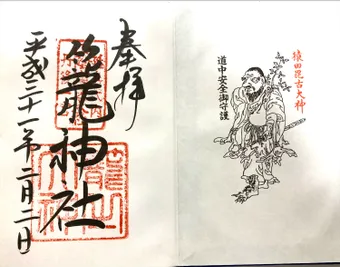 猿田毘古大神
道中安全御守護
奉拝
龍神社
平成三十一年二月二日